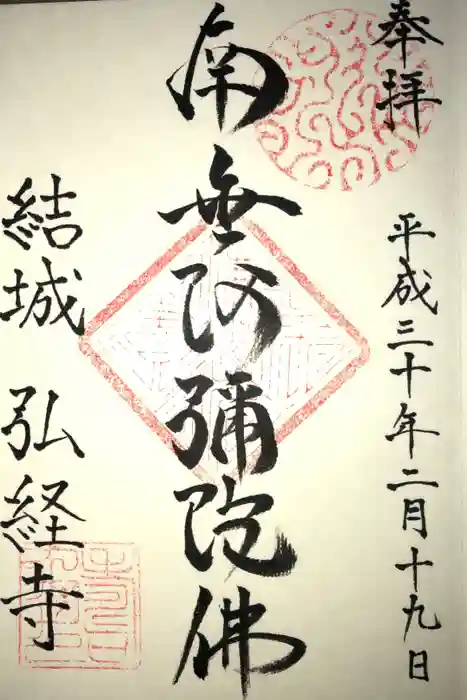 奉拝
平成三十年二月十九日
南無阿彌陀佛
結城 弘経寺